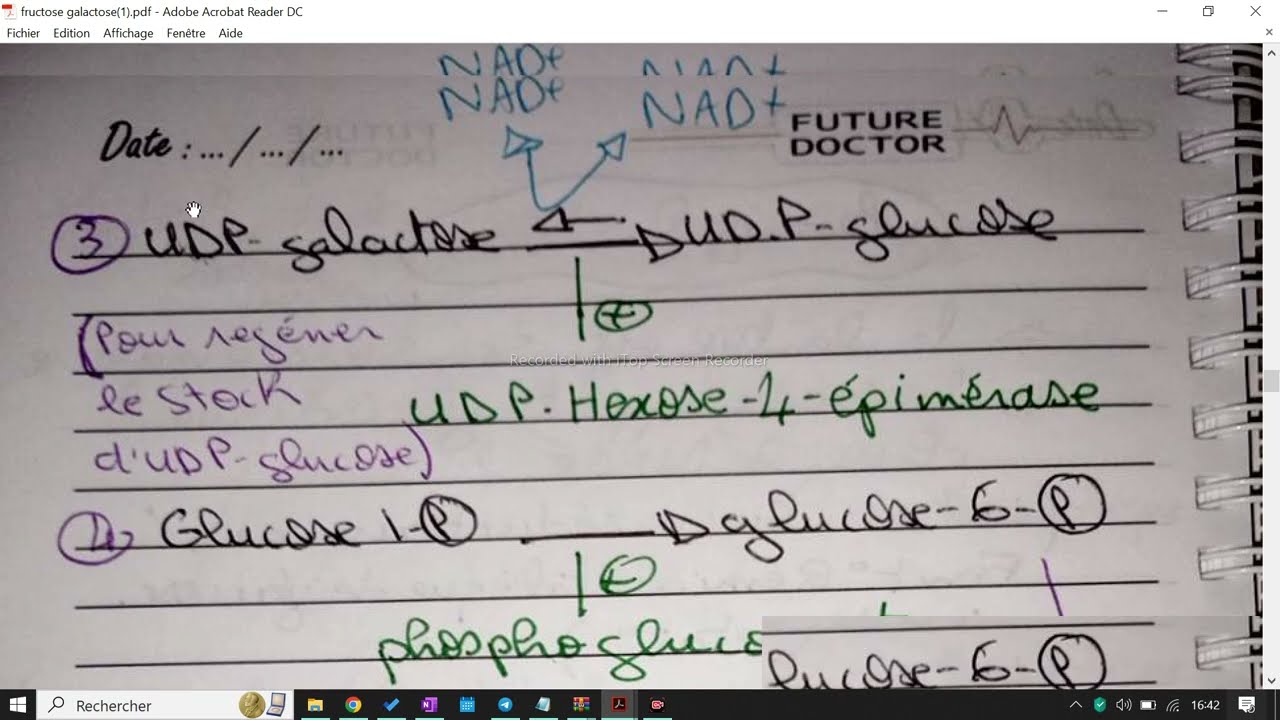 fructose galactose(1).pdf - Adobe Acrobat Reader DC
Fichier Edition Affichage Fenêtre Aide
NAD+ NAD+
NAD+ NAD+
Date : ... / ... / ...
FUTURE
DOCTOR
3 UDP-galactose UD.P-glucose
+
(Pour regéner
Recorded with iTop Screen Recorder
le stock
UDP.Hexose-4-épimérase
d'UDP-glucose)
4 Glucose 1-P glucose-6-P
phosphogluco
lucose-6-P
Rechercher
16:42